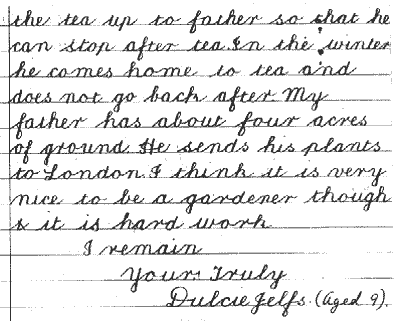 the tea up to father so that he
can stop after tea. In the winter
he comes home to tea and
does not go back after. My
father has about four acres
of ground. He sends his plants
to London. I think it is very
nice to be a gardener though
& it is hard work
I remain
Yours Truly
Dulcie Jelfs. (Aged 9).